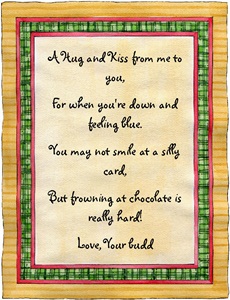 A Hug and Kiss from me to
you,
For when you're down and
feeling blue.
You may not smile at a silly
card,
But frowning at chocolate is
really hard!
Love, Your budd